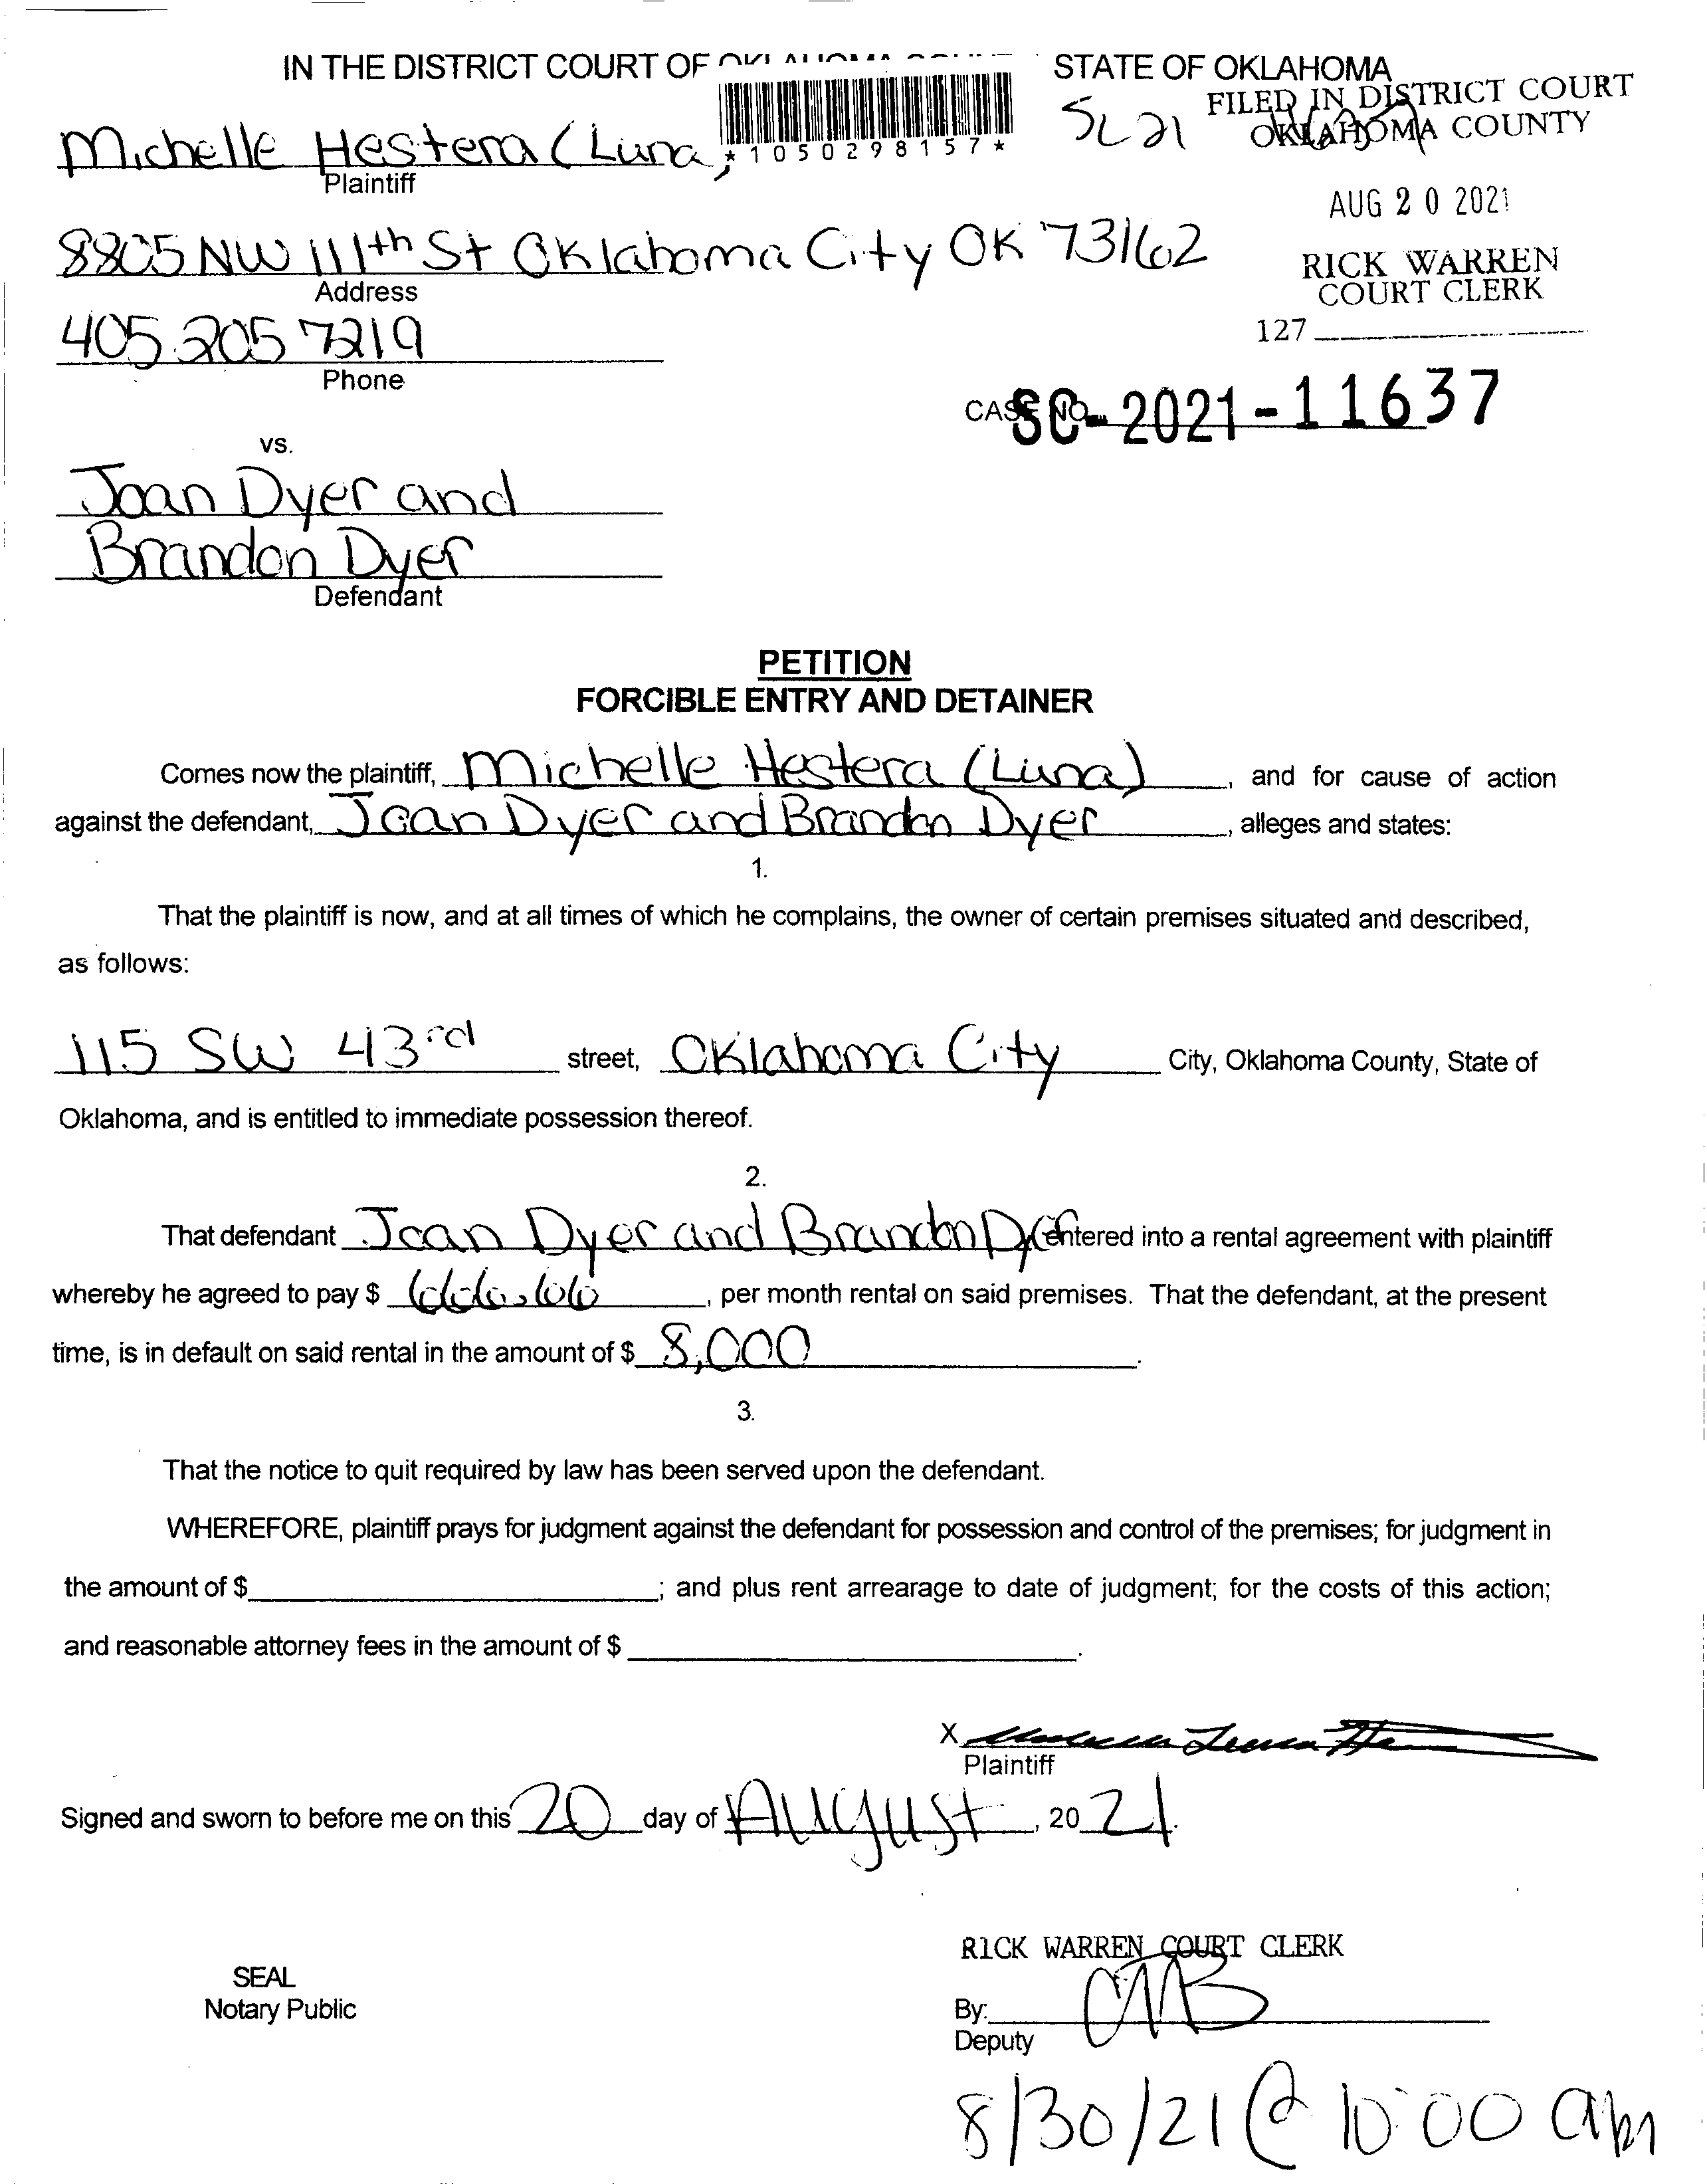 IN THE DISTRICT COURT OF OKLAHOMA STATE OF OKLAHOMA
FILED IN DISTRICT COURT
OKLAHOMA COUNTY
*1050298157*
Michelle Hestera (Luna)
Plaintiff
AUG 20 2021
8805 NW 111th St Oklahoma City OK 73162
Address
RICK WARREN
COURT CLERK
405 205 7219
127
Phone
CASE NO. SC-2021-11637
vs.
Joan Dyer and
Brandon Dyer
Defendant
PETITION
FORCIBLE ENTRY AND DETAINER
Comes now the plaintiff, Michelle Hestera (Luna), and for cause of action
against the defendant, Joan Dyer and Brandon Dyer, alleges and states:
1.
That the plaintiff is now, and at all times of which he complains, the owner of certain premises situated and described,
as follows:
115 SW 43rd street, Oklahoma City City, Oklahoma County, State of
Oklahoma, and is entitled to immediate possession thereof.
2.
That defendant Joan Dyer and Brandon Dyer entered into a rental agreement with plaintiff
whereby he agreed to pay $ 666.66, per month rental on said premises. That the defendant, at the present
time, is in default on said rental in the amount of $ 8,000.
3.
That the notice to quit required by law has been served upon the defendant.
WHEREFORE, plaintiff prays for judgment against the defendant for possession and control of the premises; for judgment in
the amount of $ ; and plus rent arrearage to date of judgment; for the costs of this action;
and reasonable attorney fees in the amount of $ .
X
Plaintiff
Signed and sworn to before me on this 20 day of August, 20 21.
RICK WARREN COURT CLERK
SEAL
Notary Public
By:
Deputy
8/30/21 @ 10:00 am